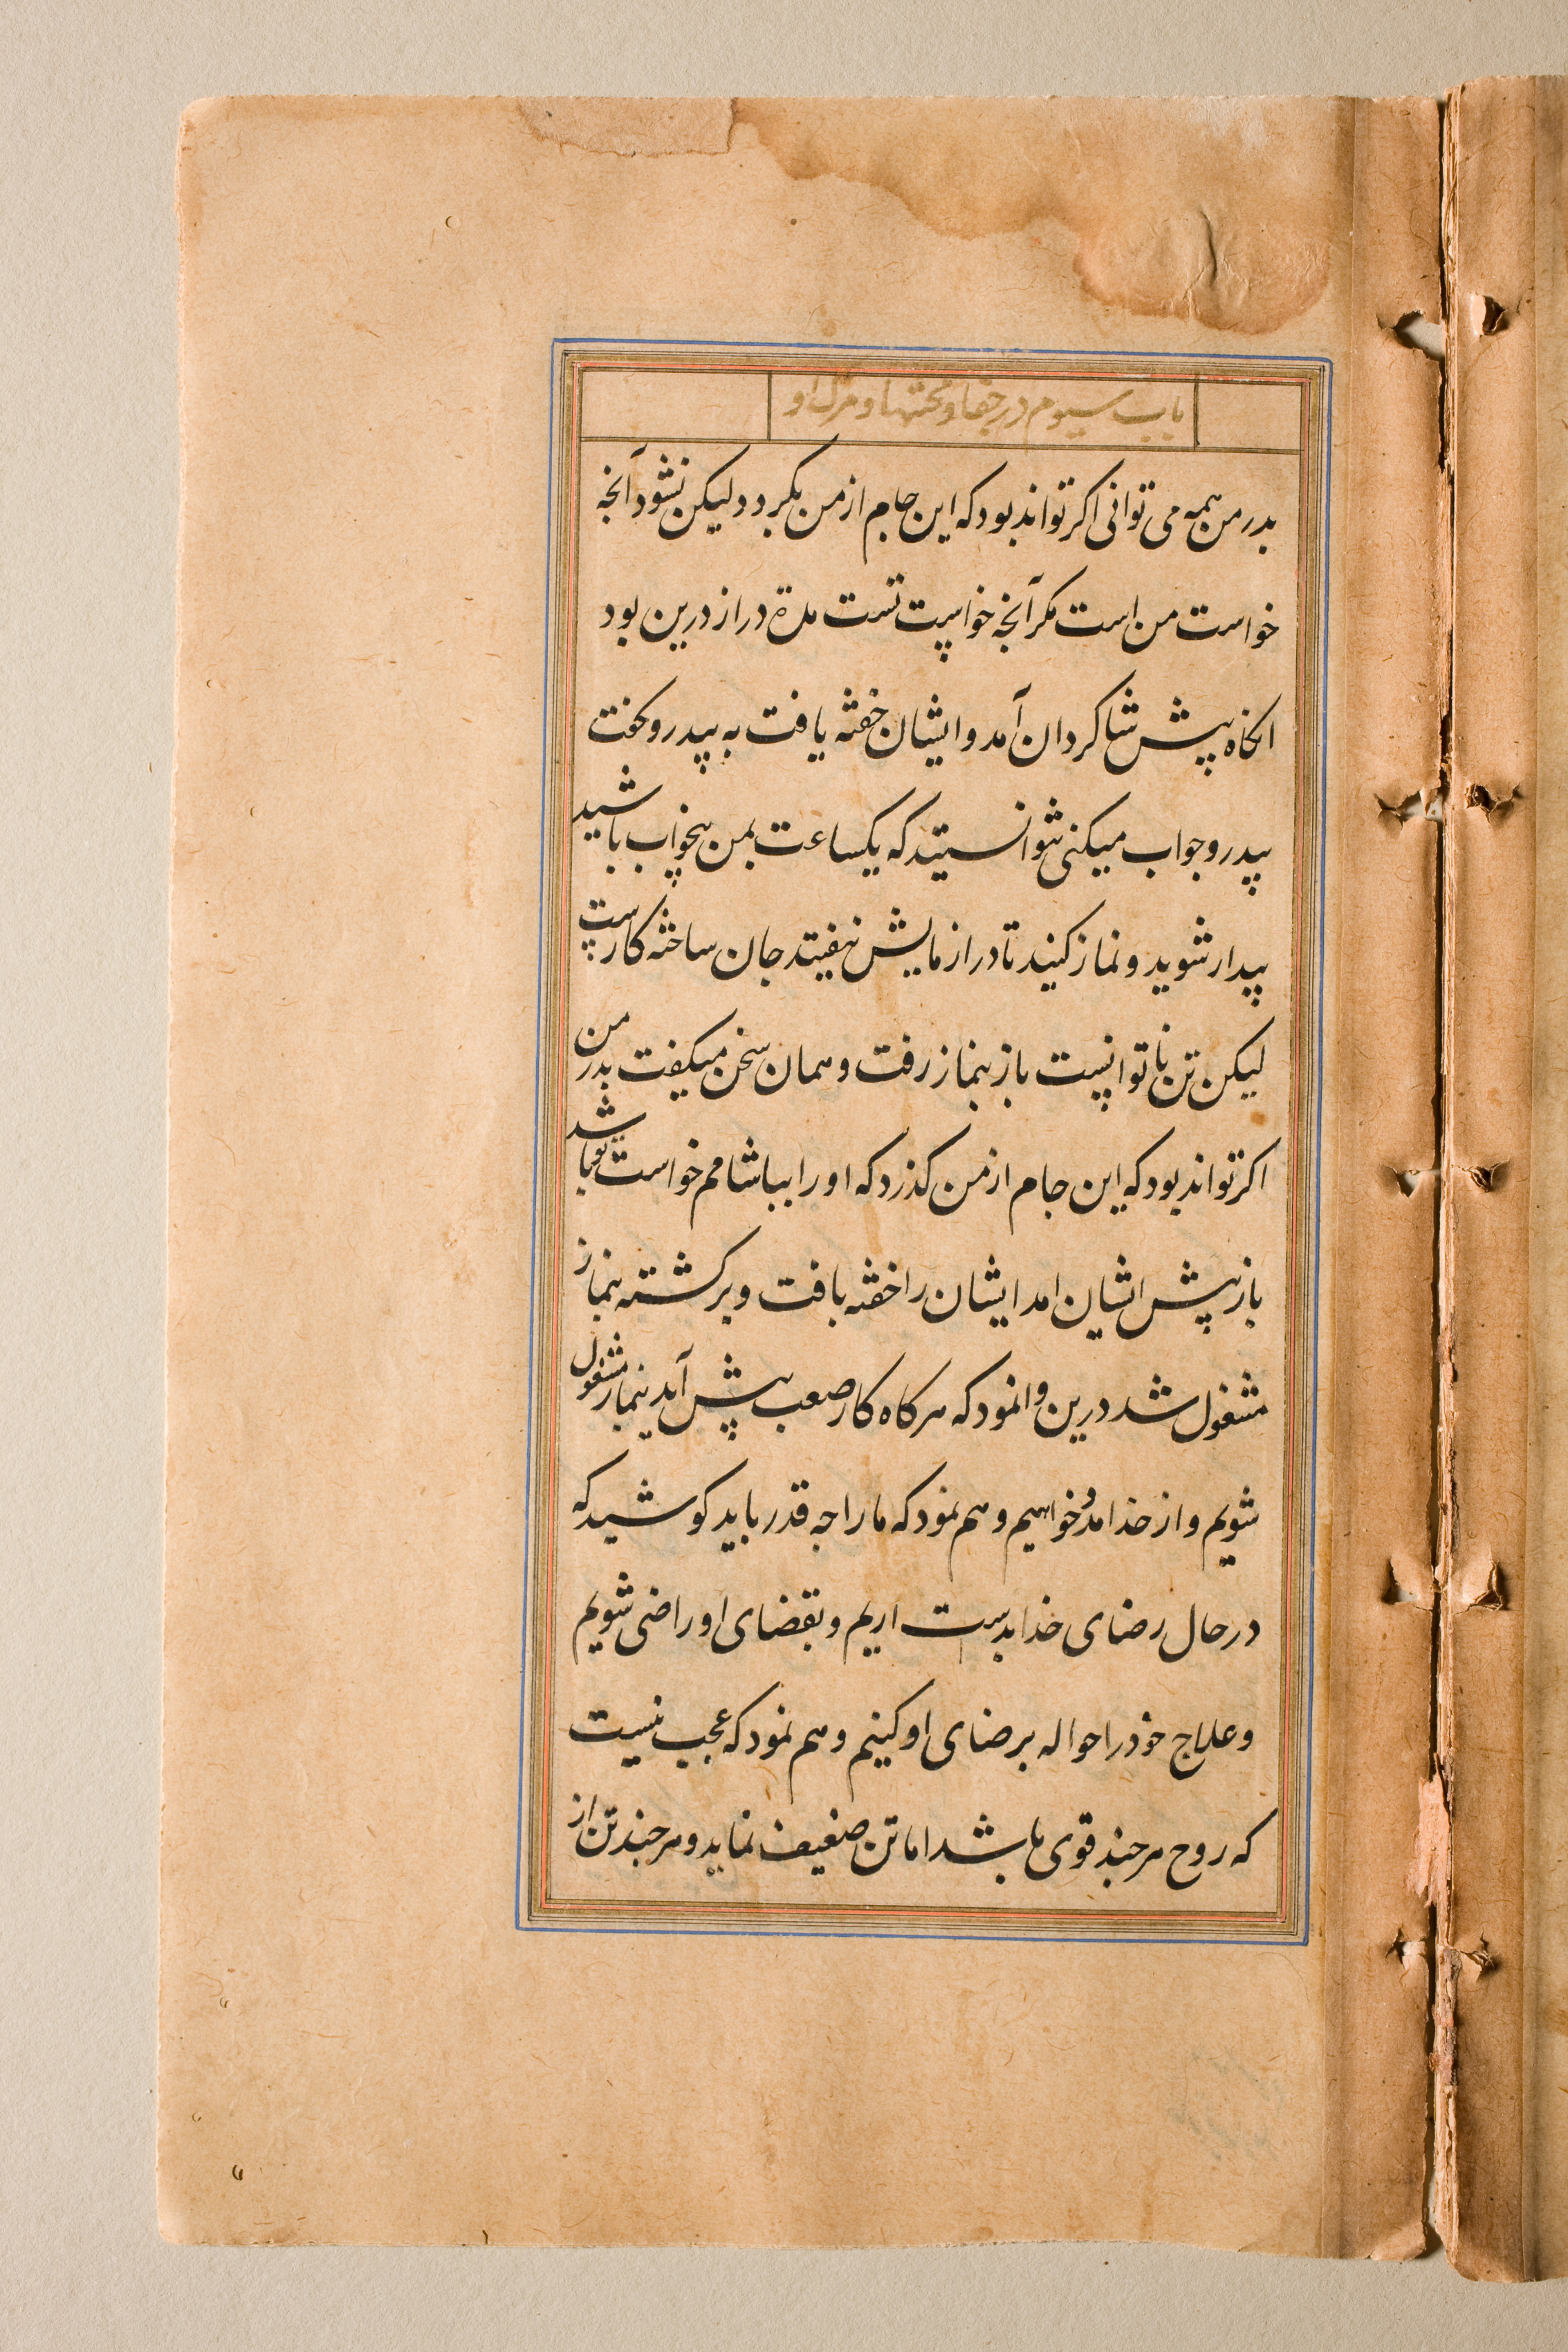 باب سیوم در جفا و محنتها و مرک او
بدر من همه می توانی اکر تواند بود که این جام از من بکرد و لیکن نشود آنجه
خواست من است مکر آنجه خواست تست مدة دراز درین بود
انکاه پیش شاکردان آمد و ایشان خفته یافت به پیدرو کفت
پیدرو جواب میکنی نتوانستید که یکساعت بمن بیخواب باشید
بیدار شوید و نماز کنید تا در ازمایش نیفیتد جان ساخته کارست
لیکن تن ناتوانست باز بنماز رفت و همان سخن میکفت بدر من
اکر تواند بود که این جام از من کذرد که او را بیاشامم خواست تو باشد
باز پیش ایشان امد ایشان را خفته یافت و برکشته بنماز
مشغول شد درین وانمود که هرکاه کار صعب پیش آید بنماز مشغول
شویم و از خدا مدد خواهیم و هم نمود که ما را جه قدر باید کوشید که
در حال رضای خدا بدست اریم و بقضای او راضی شویم
و علاج خود را حواله برضای او کنیم و هم نمود که عجب نیست
که روح هرجند قوی باشد اما تن ضعیف نماید و هرجند تن از